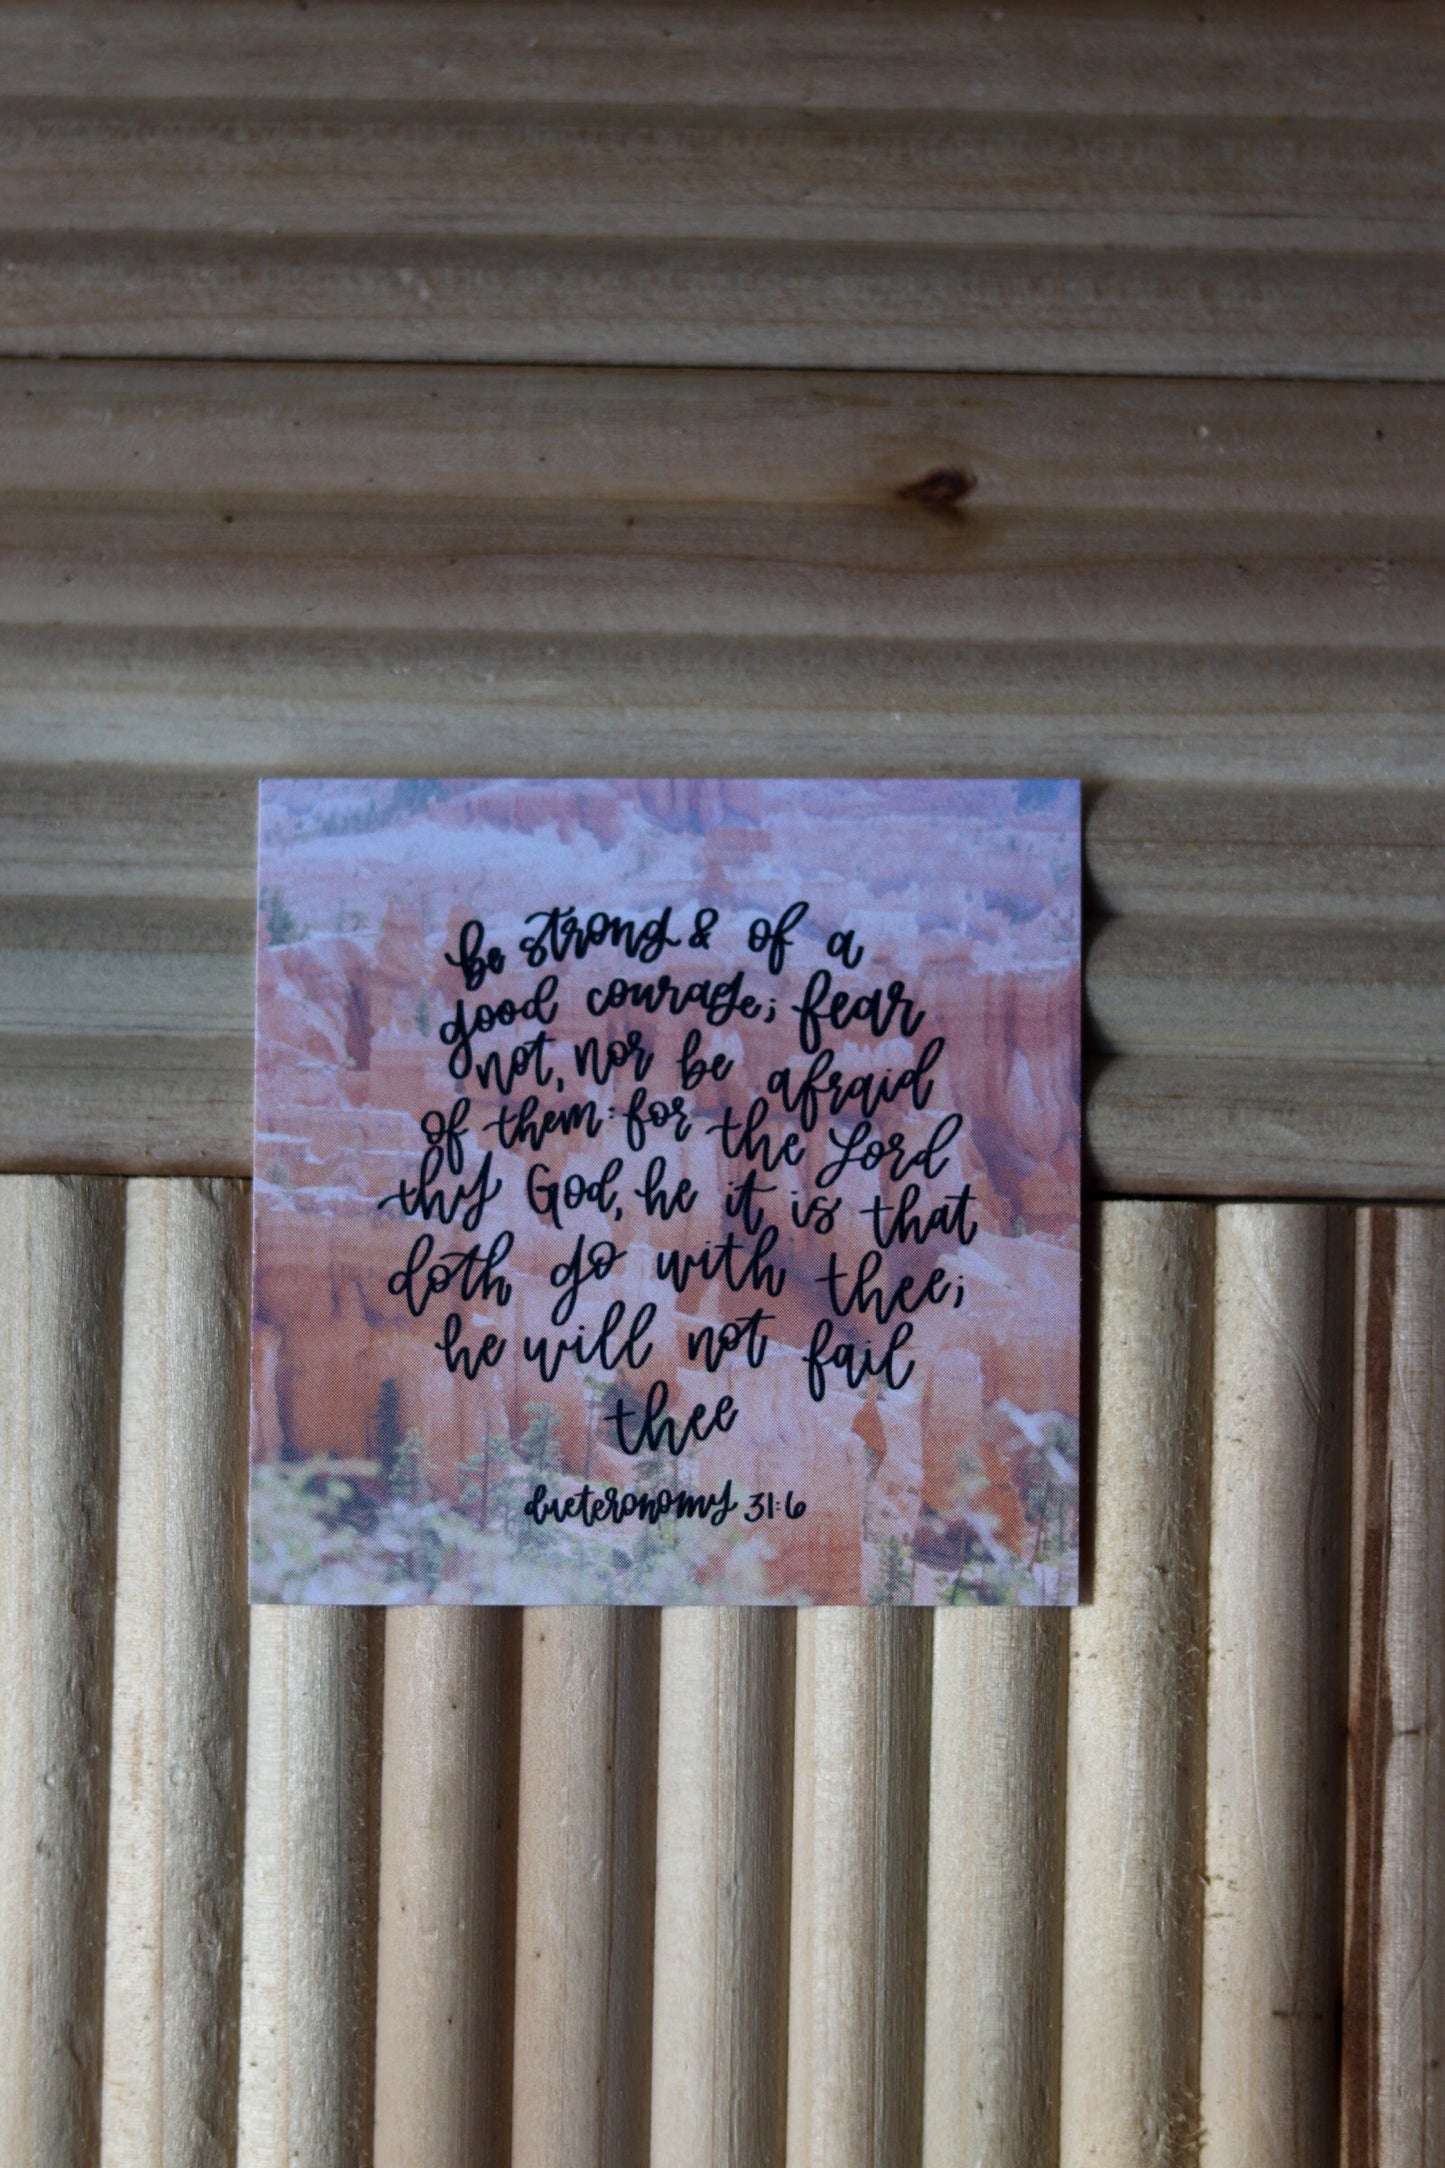 be strong & of a
good courage; fear
not, nor be afraid
of them: for the Lord
thy God, he it is that
doth go with thee;
he will not fail
thee
dueteronomy 31:6